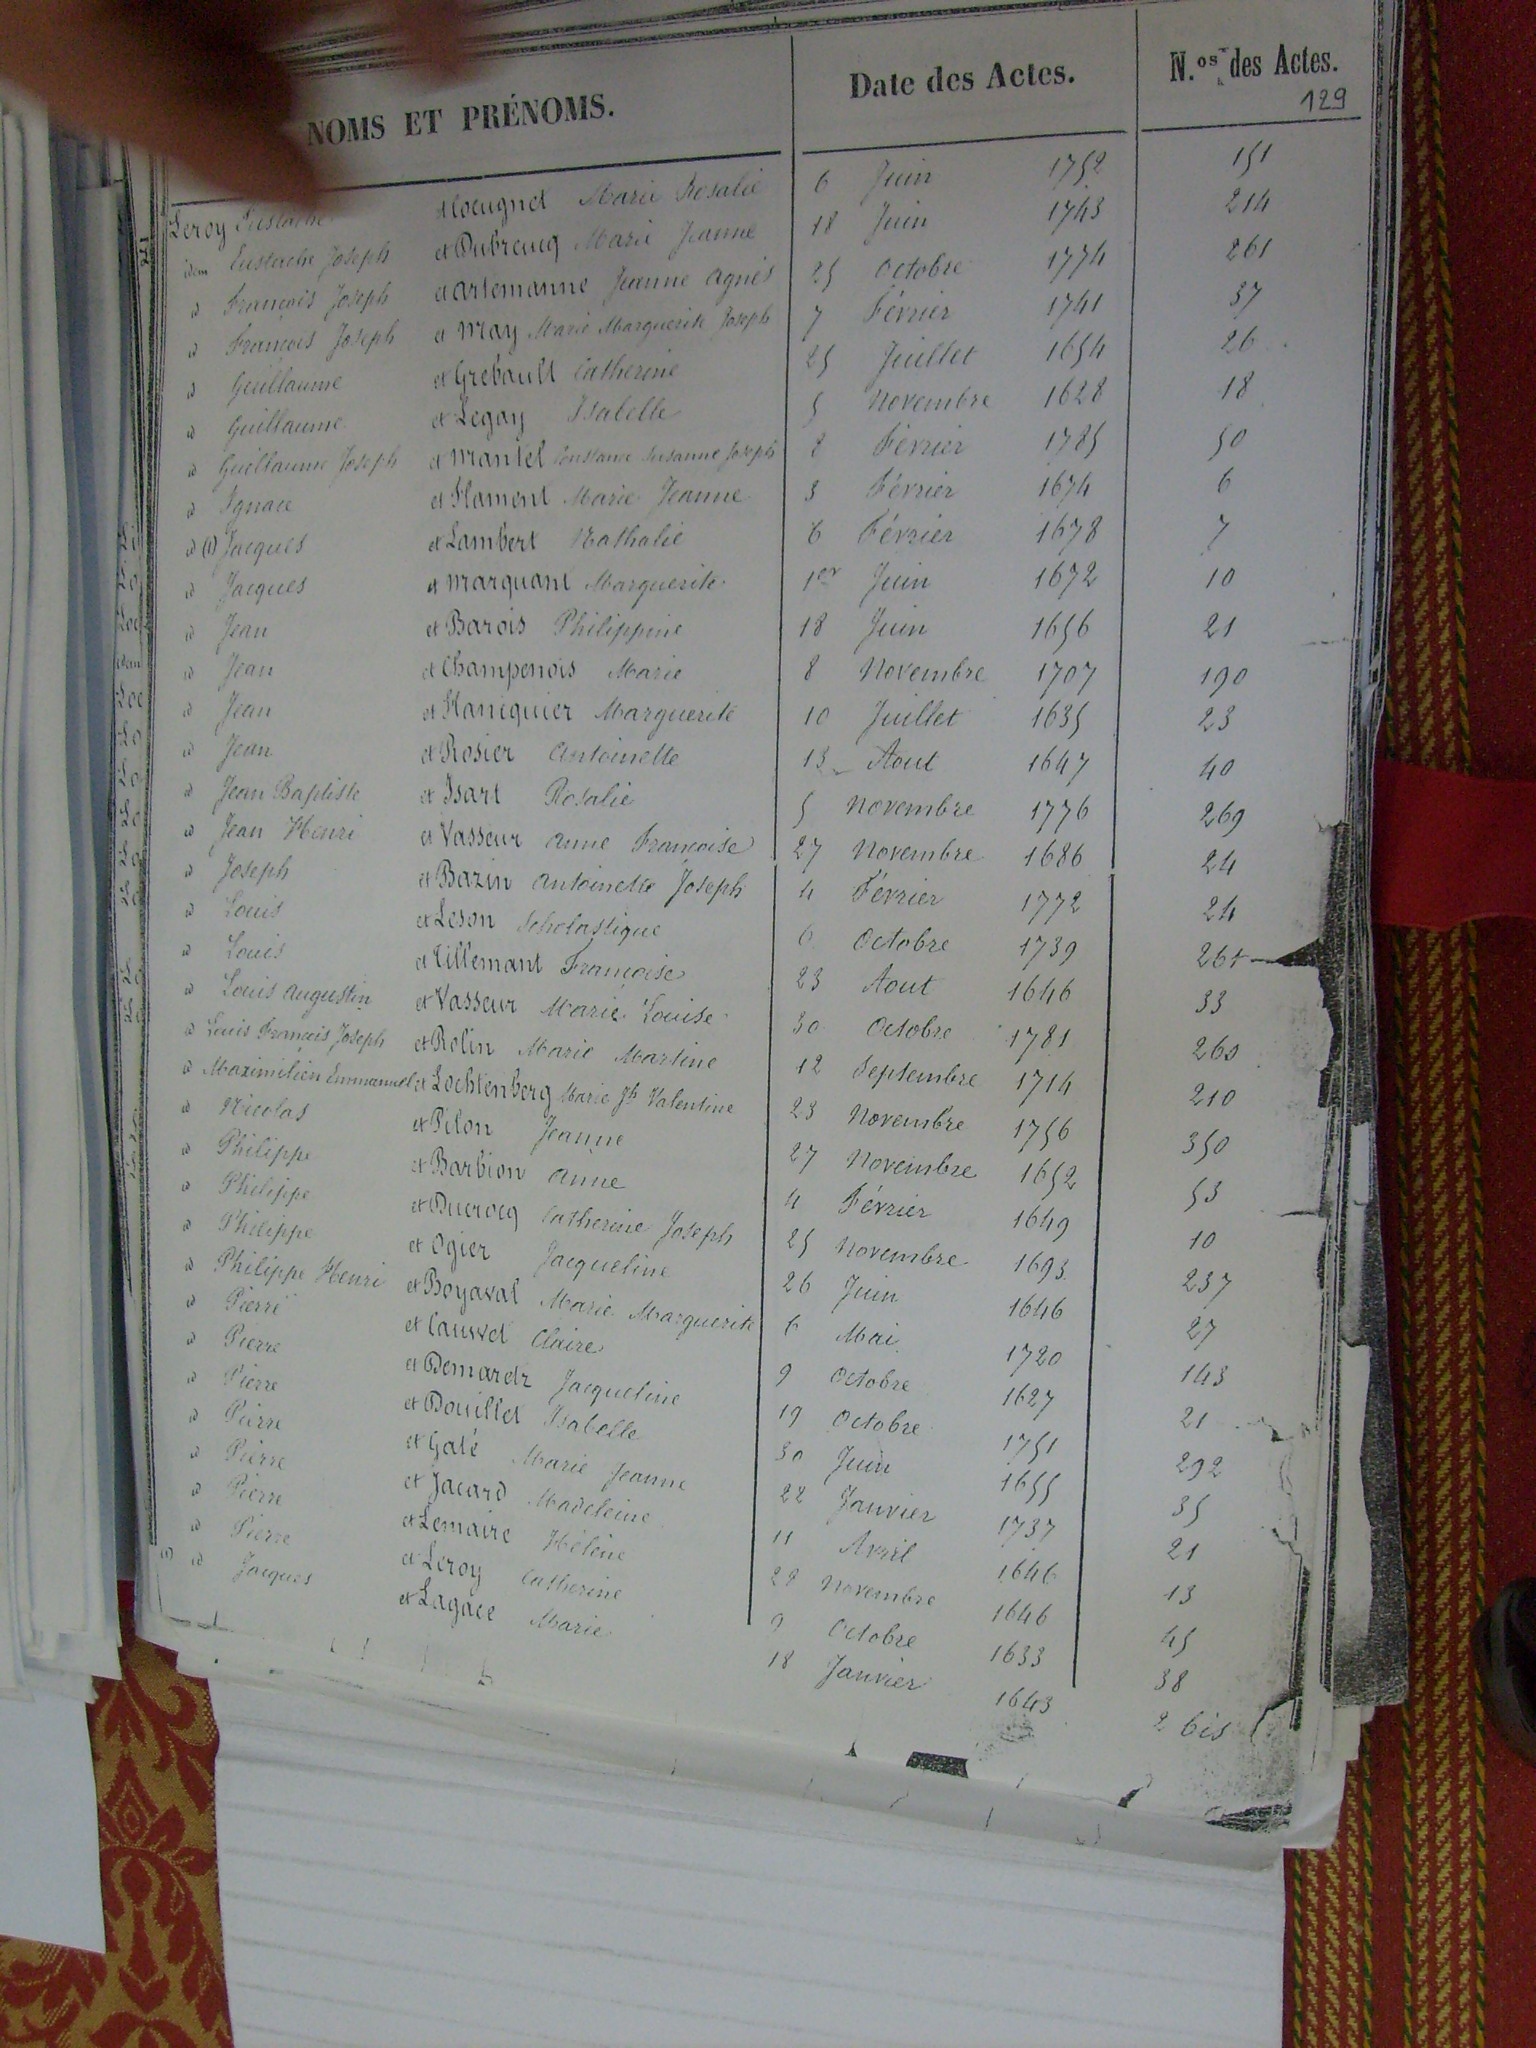 NOMS ET PRÉNOMS. Date des Actes. N.os des Actes.
129
Leroy Eustache et Coeugnet Marie Rosalie 6 Juin 1752 151
idem Eustache Joseph et Dubreucq Marie Jeanne 18 Juin 1743 214
id François Joseph et artemanne Jeanne agnès 25 Octobre 1774 261
id François Joseph et May Marie Marguerite Joseph 7 Février 1741 37
id Guillaume et Grébault Catherine 25 Juillet 1654 26
id Guillaume et Legay Isabelle 5 Novembre 1628 18
id Guillaume Joseph et Mantel Constance Susanne Joseph 8 Février 1785 50
id Ignace et Flament Marie Jeanne 3 Février 1674 6
id (1) Jacques et Lambert Nathalie 6 Février 1678 7
id Jacques et Marquant Marguerite 1er Juin 1672 10
id Jean et Barois Philippine 18 Juin 1656 21
id Jean et Champenois Marie 8 Novembre 1707 190
id Jean et Hanicquier Marguerite 10 Juillet 1635 23
id Jean et Rosier Antoinette 13 Aout 1647 40
id Jean Baptiste et Isart Rosalie 5 Novembre 1776 269
id Jean Henri et Vasseur Anne Françoise 27 Novembre 1686 24
id Joseph et Bazin Antoinette Joseph 4 Février 1772 24
id Louis et Leson Scholastique 6 Octobre 1739 261
id Louis et Tillemant Françoise 23 Aout 1646 33
id Louis Augustin et Vasseur Marie Louise 30 Octobre 1781 260
id Louis François Joseph et Rolin Marie Martine 12 Septembre 1714 210
id Maximilien Emmanuel et Lochtenberg Marie Jh Valentine 23 Novembre 1756 350
id Nicolas et Pilon Jeanne 27 Novembre 1652 53
id Philippe et Barbion Anne 4 Février 1649 10
id Philippe et Ducrocq Catherine Joseph 25 Novembre 1693 237
id Philippe et Ogier Jacqueline 26 Juin 1646 27
id Philippe Henri et Boyaval Marie Marguerite 6 Mai 1720 143
id Pierre et Cauwet Claire 9 Octobre 1627 21
id Pierre et Demardz Jacqueline 19 Octobre 1751 292
id Pierre et Douillet Isabelle 30 Juin 1655 35
id Pierre et Gaté Marie Jeanne 22 Janvier 1737 21
id Pierre et Jacard Madeleine 11 Avril 1646 13
id Pierre et Lemaire Hélène 28 Novembre 1646 45
id Pierre et Leroy Catherine 9 Octobre 1633 38
id Jacques et Lagace Marie 18 Janvier 1643 2 bis